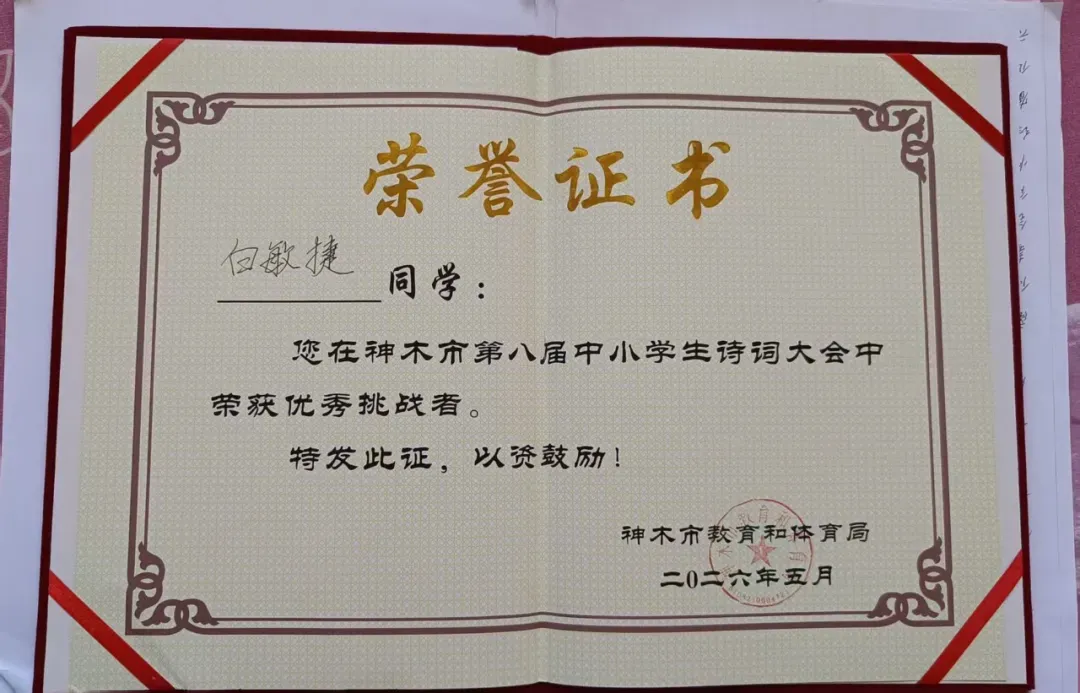 荣誉证书
白敏捷同学：
您在神木市第八届中小学生诗词大会中
荣获优秀挑战者。
特发此证，以资鼓励！
神木市教育和体育局
二0二六年五月